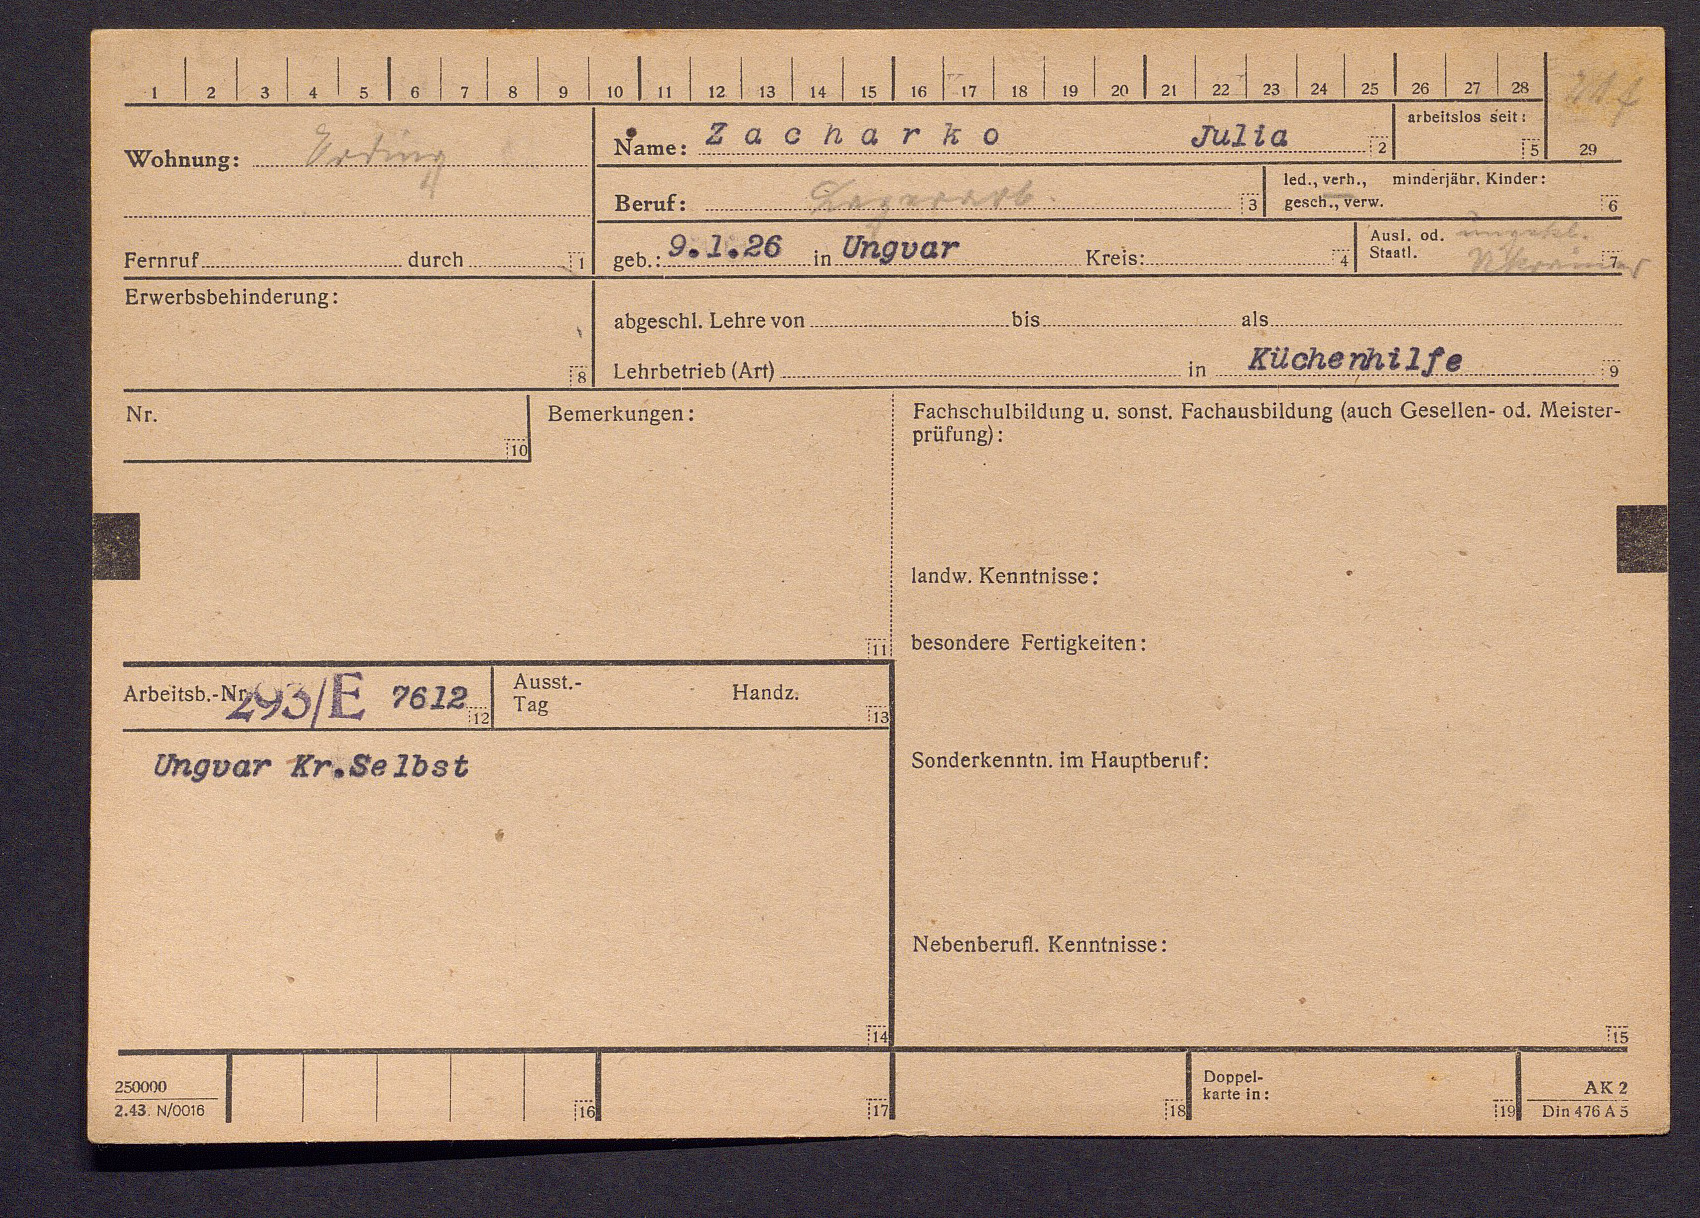 1 2 3 4 5 6 7 8 9 10 11 12 13 14 15 16 17 18 19 20 21 22 23 24 25 26 27 28
Wohnung: Erding
Name: Zacharko Julia 2
arbeitslos seit: 5
29
Beruf: Lagerarb. 3
led., verh., minderjähr. Kinder:
gesch., verw. 6
Fernruf durch 1
geb.: 9.1.26 in Ungvar Kreis: 4
Ausl. od. ungekl.
Staatl. Ukrainer 7
Erwerbsbehinderung:
8
abgeschl. Lehre von bis als
Lehrbetrieb (Art) in Küchenhilfe 9
Nr.
10
Bemerkungen:
11
Fachschulbildung u. sonst. Fachausbildung (auch Gesellen- od. Meister-
prüfung):
landw. Kenntnisse:
besondere Fertigkeiten:
Arbeitsb.-Nr. 293/E 7612 12
Ausst.-
Tag
Handz.
13
Ungvar Kr.Selbst
14
Sonderkenntn. im Hauptberuf:
Nebenberufl. Kenntnisse:
15
250000
2.43. N/0016
16
17
18
Doppel-
karte in:
19
AK 2
Din 476 A 5